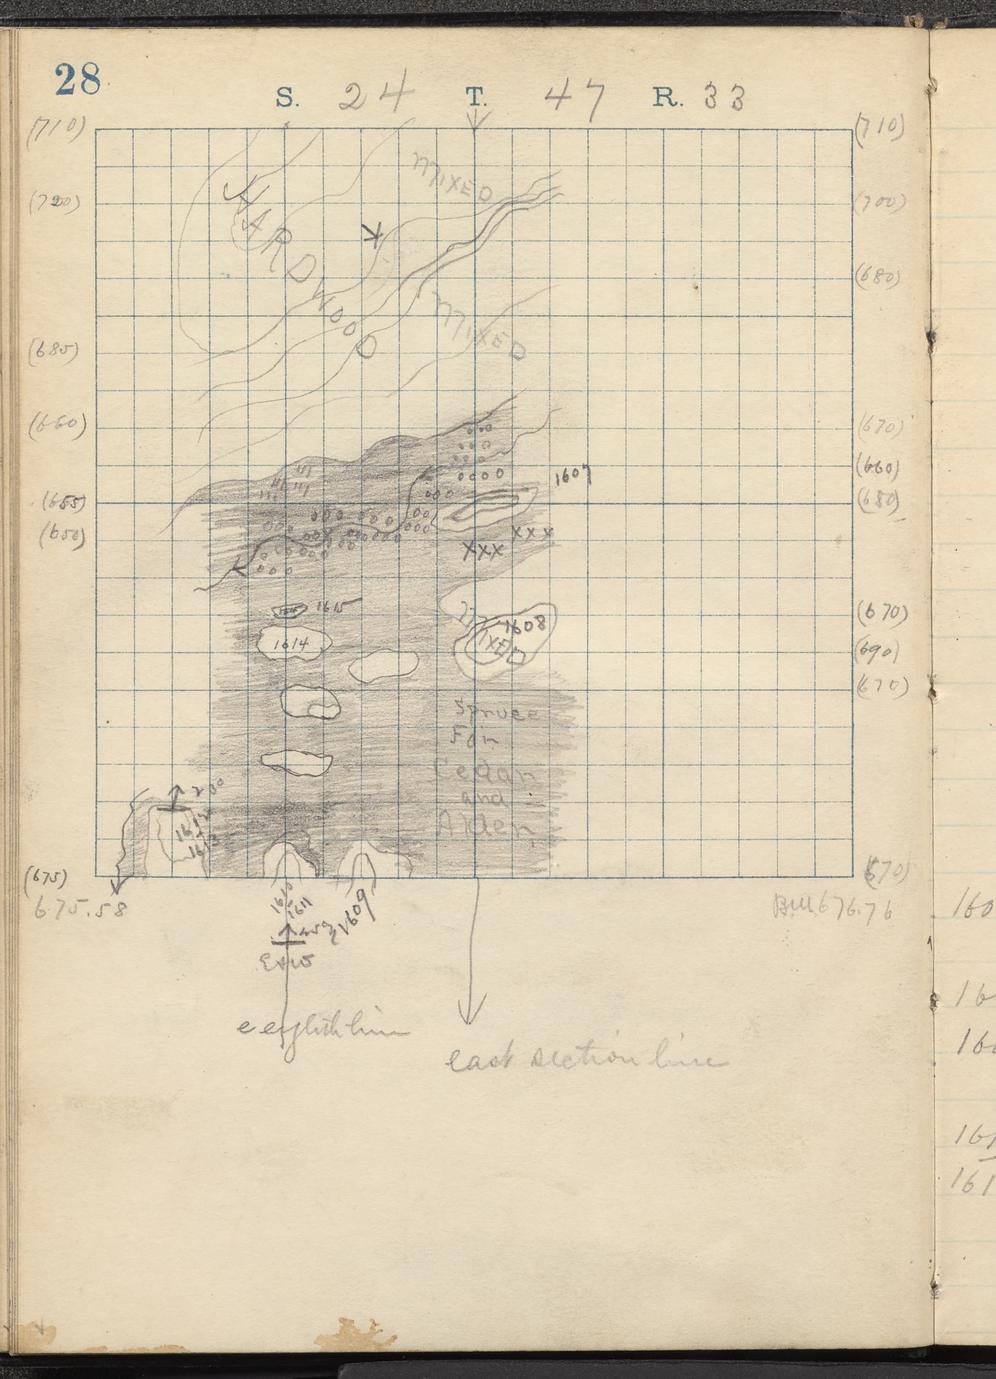 28
S. 24 T. 47 R. 33
(710) (710)
MIXED
(700)
HARDWOOD
(680)
MIXED
(685)
(660) (670)
(660)
1607
(655) (680)
(650)
XXX
XXX
1615
(670)
1608
1614
MIXED
(690)
(670)
Spruce
Fir
Cedar
and
Alder
200
1612
1613
(675) (670)
675.58
676.76
1610
1611
1609
E & W
east section line
160
16
16
161